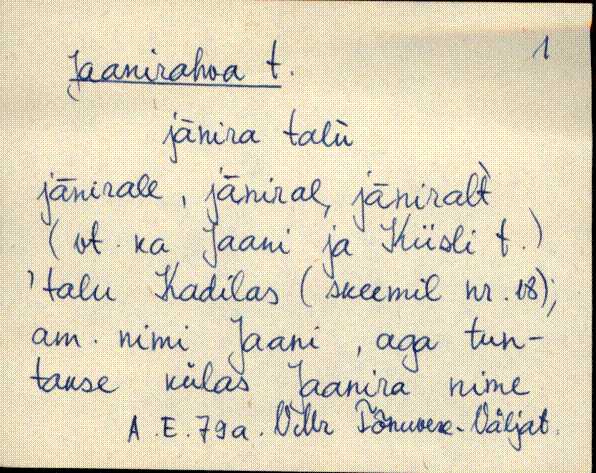 1
Jaanirahva t.
jānira talù
jānirale, jāniral, jāniralt̀
(vt. ka Jaani ja Küsli t.)
'talu Kadilas (skeemil nr. 18);
am. nimi Jaani, aga tun-
takse külas Jaanira nime
A. E. 79a. VMr Väljat.